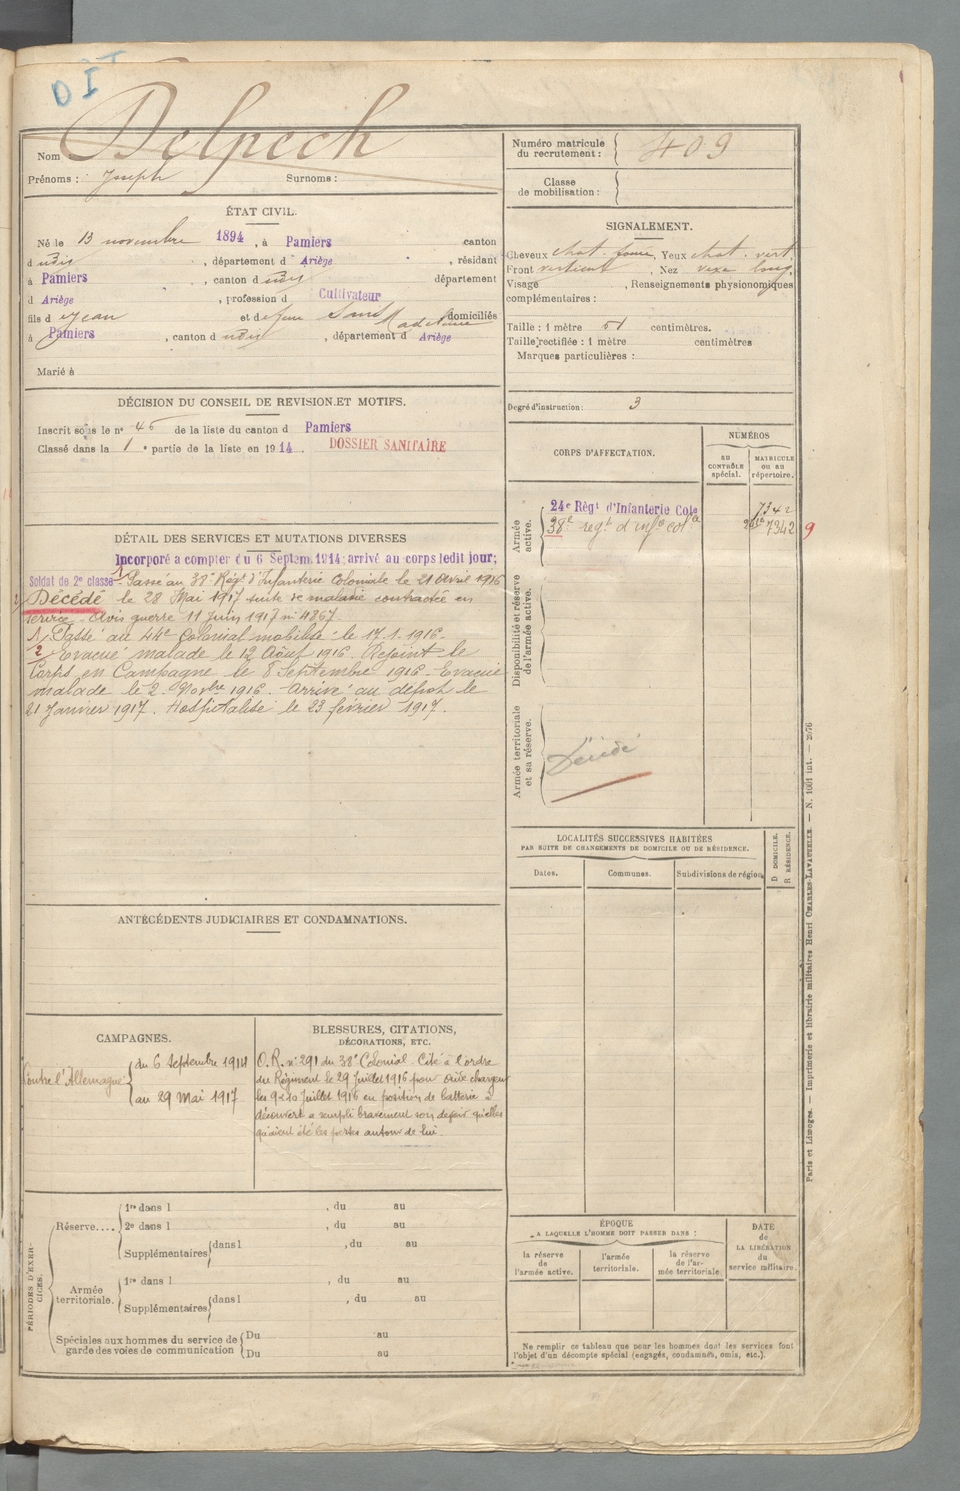 Nom Delpech
Prénoms : Joseph Surnoms :
Numéro matricule du recrutement : 409
Classe de mobilisation :
ÉTAT CIVIL.
Né le 13 novembre 1894, à Pamiers canton
d udis, département d Ariège, résidant
à Pamiers, canton d udis département
d Ariège, profession d Cultivateur
fils d Jean et de feue Madeleine domiciliés
à Pamiers, canton d udis, département d Ariège
Marié à
SIGNALEMENT.
Cheveux chat. foncé, Yeux chat. vert.
Front vertical, Nez long
Visage , Renseignements physionomiques
complémentaires :
Taille : 1 mètre 51 centimètres.
Taille rectifiée : 1 mètre centimètres
Marques particulières :
Degré d'instruction : 3
DÉCISION DU CONSEIL DE REVISION ET MOTIFS.
Inscrit sous le n° 46 de la liste du canton d Pamiers
Classé dans la 1e partie de la liste en 1914.
DOSSIER SANITAIRE
DÉTAIL DES SERVICES ET MUTATIONS DIVERSES
Incorporé a compter du 6 Septem. 1914; arrivé au corps ledit jour;
Soldat de 2e classe 1 Passé au 38e Régt d'Infanterie Coloniale le 21 Avril 1916
2 Décédé le 28 Mai 1917 suite de maladie contractée en
service - Avis guerre 11 Juin 1917 n° 4867.
1/ Passé au 44e Colonial mobilisé le 17.1.1916.
2 Evacué malade le 12 Août 1916. Rejoint le
Corps en Campagne le 8 Septembre 1916. Evacué
malade le 2 9bre 1916. Arrivé au dépôt le
21 Janvier 1917. Hospitalisé le 23 février 1917.
CORPS D'AFFECTATION.
NUMÉROS
AU CONTRÔLE spécial.
MATRICULE ou au répertoire.
Armée active.
24e Régt d'Infanterie Cole 7342
38e regt d'infie colle 7342 9
Disponibilité et réserve de l'armée active.
Armée territoriale et sa réserve.
Décédé
LOCALITÉS SUCCESSIVES HABITÉES
PAR SUITE DE CHANGEMENTS DE DOMICILE OU DE RÉSIDENCE.
Dates. Communes. Subdivisions de région.
D DOMICILE.
R RÉSIDENCE.
ANTÉCÉDENTS JUDICIAIRES ET CONDAMNATIONS.
CAMPAGNES.
Contre l'Allemagne
du 6 Septembre 1914
au 29 Mai 1917
BLESSURES, CITATIONS,
DÉCORATIONS, ETC.
O.R. n° 291 du 38e Colonial. Cité à l'ordre
du Régiment le 29 Juillet 1916 pour
les 9 et 10 Juillet 1916 en position de batterie à
découvert a rempli bravement son devoir quelles
qu'aient été les pertes autour de lui.
PÉRIODES D'EXERCICES.
Réserve....
1re dans l , du au
2e dans l , du au
Supplémentaires dans l , du au
Armée territoriale.
1re dans l , du au
Supplémentaires dans l , du au
Spéciales aux hommes du service de garde des voies de communication
Du au
Du au
ÉPOQUE
A LAQUELLE L'HOMME DOIT PASSER DANS :
la réserve de l'armée active.
l'armée territoriale.
la réserve de l'armée territoriale
DATE de LA LIBÉRATION du service militaire.
Ne remplir ce tableau que pour les hommes dont les services font
l'objet d'un décompte spécial (engagés, condamnés, omis, etc.).
Paris et Limoges. — Imprimerie et librairie militaires Henri CHARLES-LAVAUZELLE. — N. 1001 int. — 2076